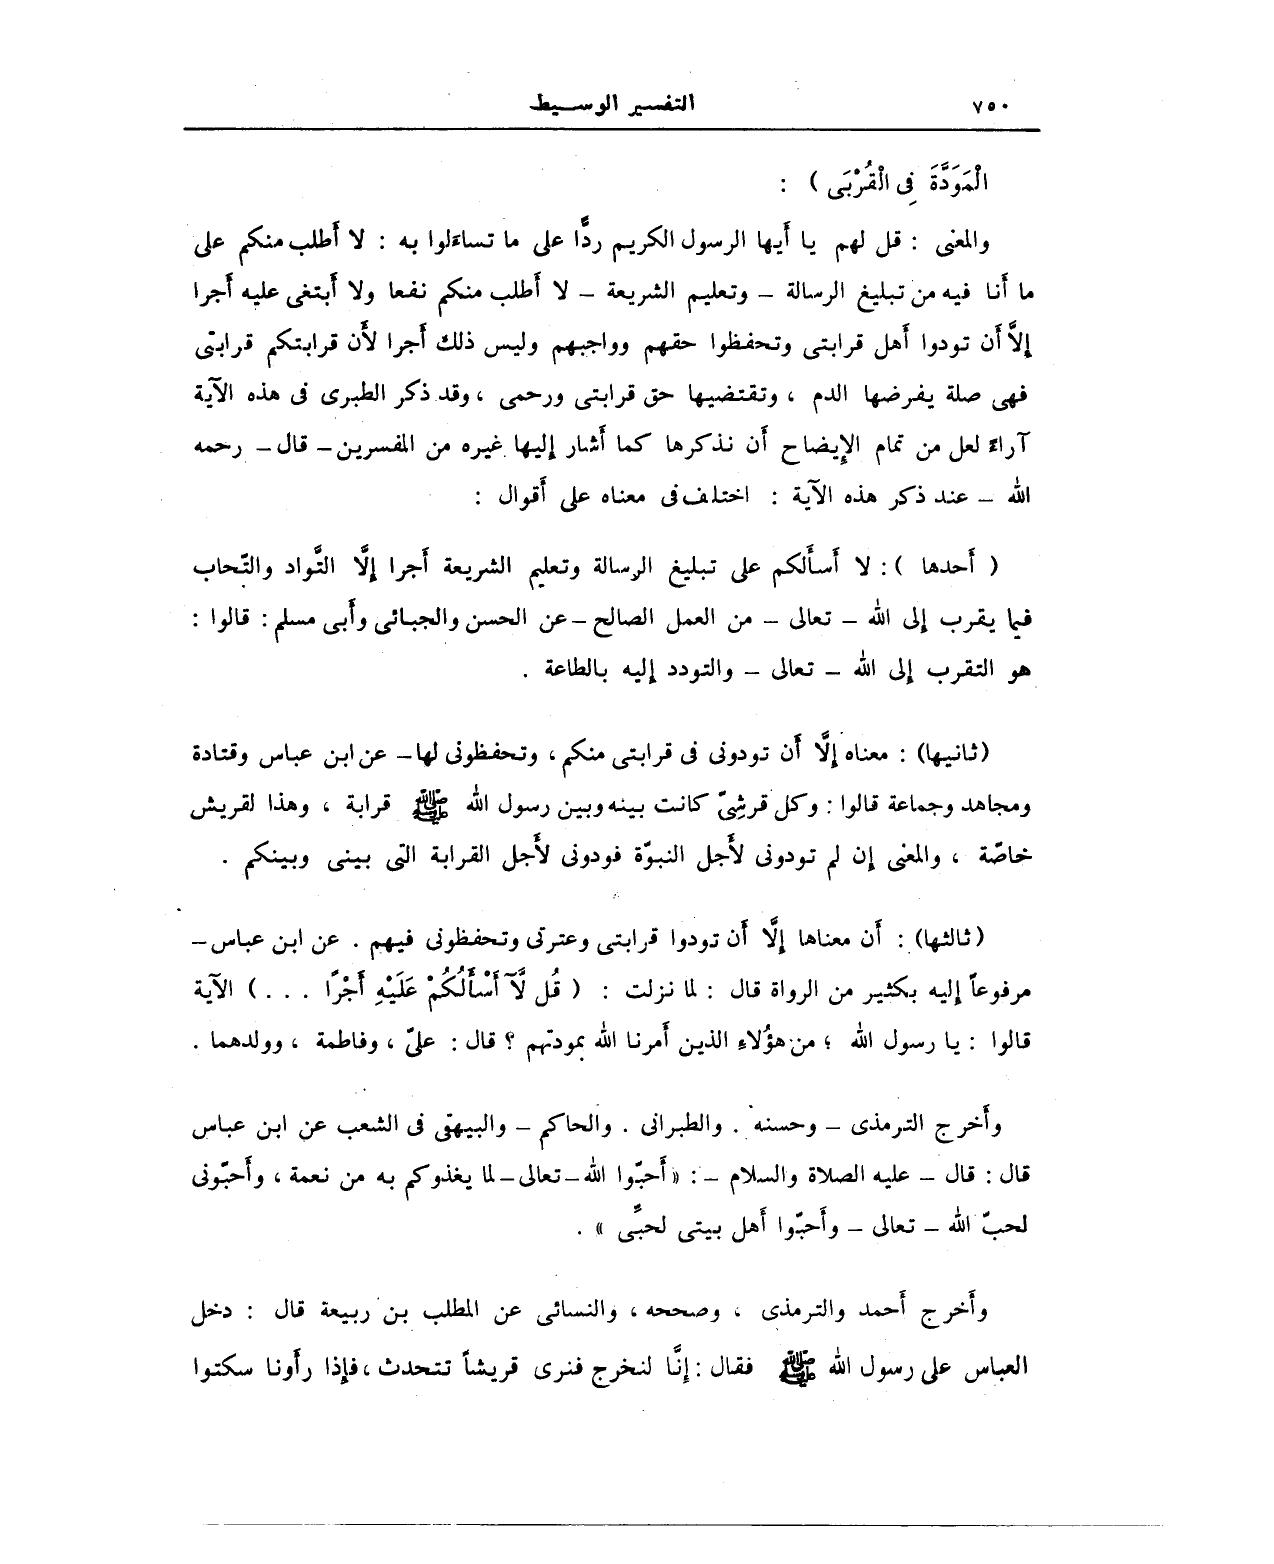 ٧٥٠ التفسير الوسيط
الْمَوَدَّةَ فِى الْقُرْبَى ) :
والمعنى : قل لهم يا أيها الرسول الكريم ردًّا على ما تساءلوا به : لا أطلب منكم على
ما أنا فيه من تبليغ الرسالة – وتعليم الشريعة – لا أطلب منكم نفعا ولا أبتغى عليه أجرا
إلاَّ أن تودوا أهل قرابتى وتحفظوا حقهم وواجبهم وليس ذلك أجرا لأن قرابتكم قرابتى
فهى صلة يفرضها الدم ، وتقتضيها حق قرابتى ورحمى ، وقد ذكر الطبرى فى هذه الآية
آراءً لعل من تمام الإيضاح أن نذكرها كما أشار إليها غيره من المفسرين – قال – رحمه
الله – عند ذكر هذه الآية : اختلف فى معناه على أقوال :
( أحدها ) : لا أسألكم على تبليغ الرسالة وتعليم الشريعة أجرا إلَّا التَّواد والتّحاب
فيما يقرب إلى الله – تعالى – من العمل الصالح – عن الحسن والجبائى وأبى مسلم : قالوا :
هو التقرب إلى الله – تعالى – والتودد إليه بالطاعة .
(ثانيها) : معناه إلَّا أن تودونى فى قرابتى منكم ، وتحفظونى لها – عن ابن عباس وقتادة
ومجاهد وجماعة قالوا : وكل قرشِىّ كانت بينه وبين رسول الله ﷺ قرابة ، وهذا لقريش
خاصّة ، والمعنى إن لم تودونى لأجل النبوّة فودونى لأجل القرابة التى بينى وبينكم .
(ثالثها) : أن معناها إلَّا أن تودوا قرابتى وعترتى وتحفظونى فيهم . عن ابن عباس –
مرفوعاً إليه بكثير من الرواة قال : لما نزلت : ( قُل لَّآ أَسْأَلُكُمْ عَلَيْهِ أَجْرًا . . . ) الآية
قالوا : يا رسول الله ؛ من هؤُلاءِ الذين أمرنا الله بمودتهم ؟ قال : علىّ ، وفاطمة ، وولدهما .
وأخرج الترمذى – وحسنه . والطبرانى . والحاكم – والبيهقى فى الشعب عن ابن عباس
قال : قال – عليه الصلاة والسلام – : « أحبّوا الله – تعالى – لما يغذوكم به من نعمة ، وأحبّونى
لحبّ الله – تعالى – وأحبّوا أهل بيتى لحبِّى » .
وأخرج أحمد والترمذى ، وصححه ، والنسائى عن المطلب بن ربيعة قال : دخل
العباس على رسول الله ﷺ فقال : إنَّا لنخرج فنرى قريشاً تتحدث ، فإذا رأونا سكتوا